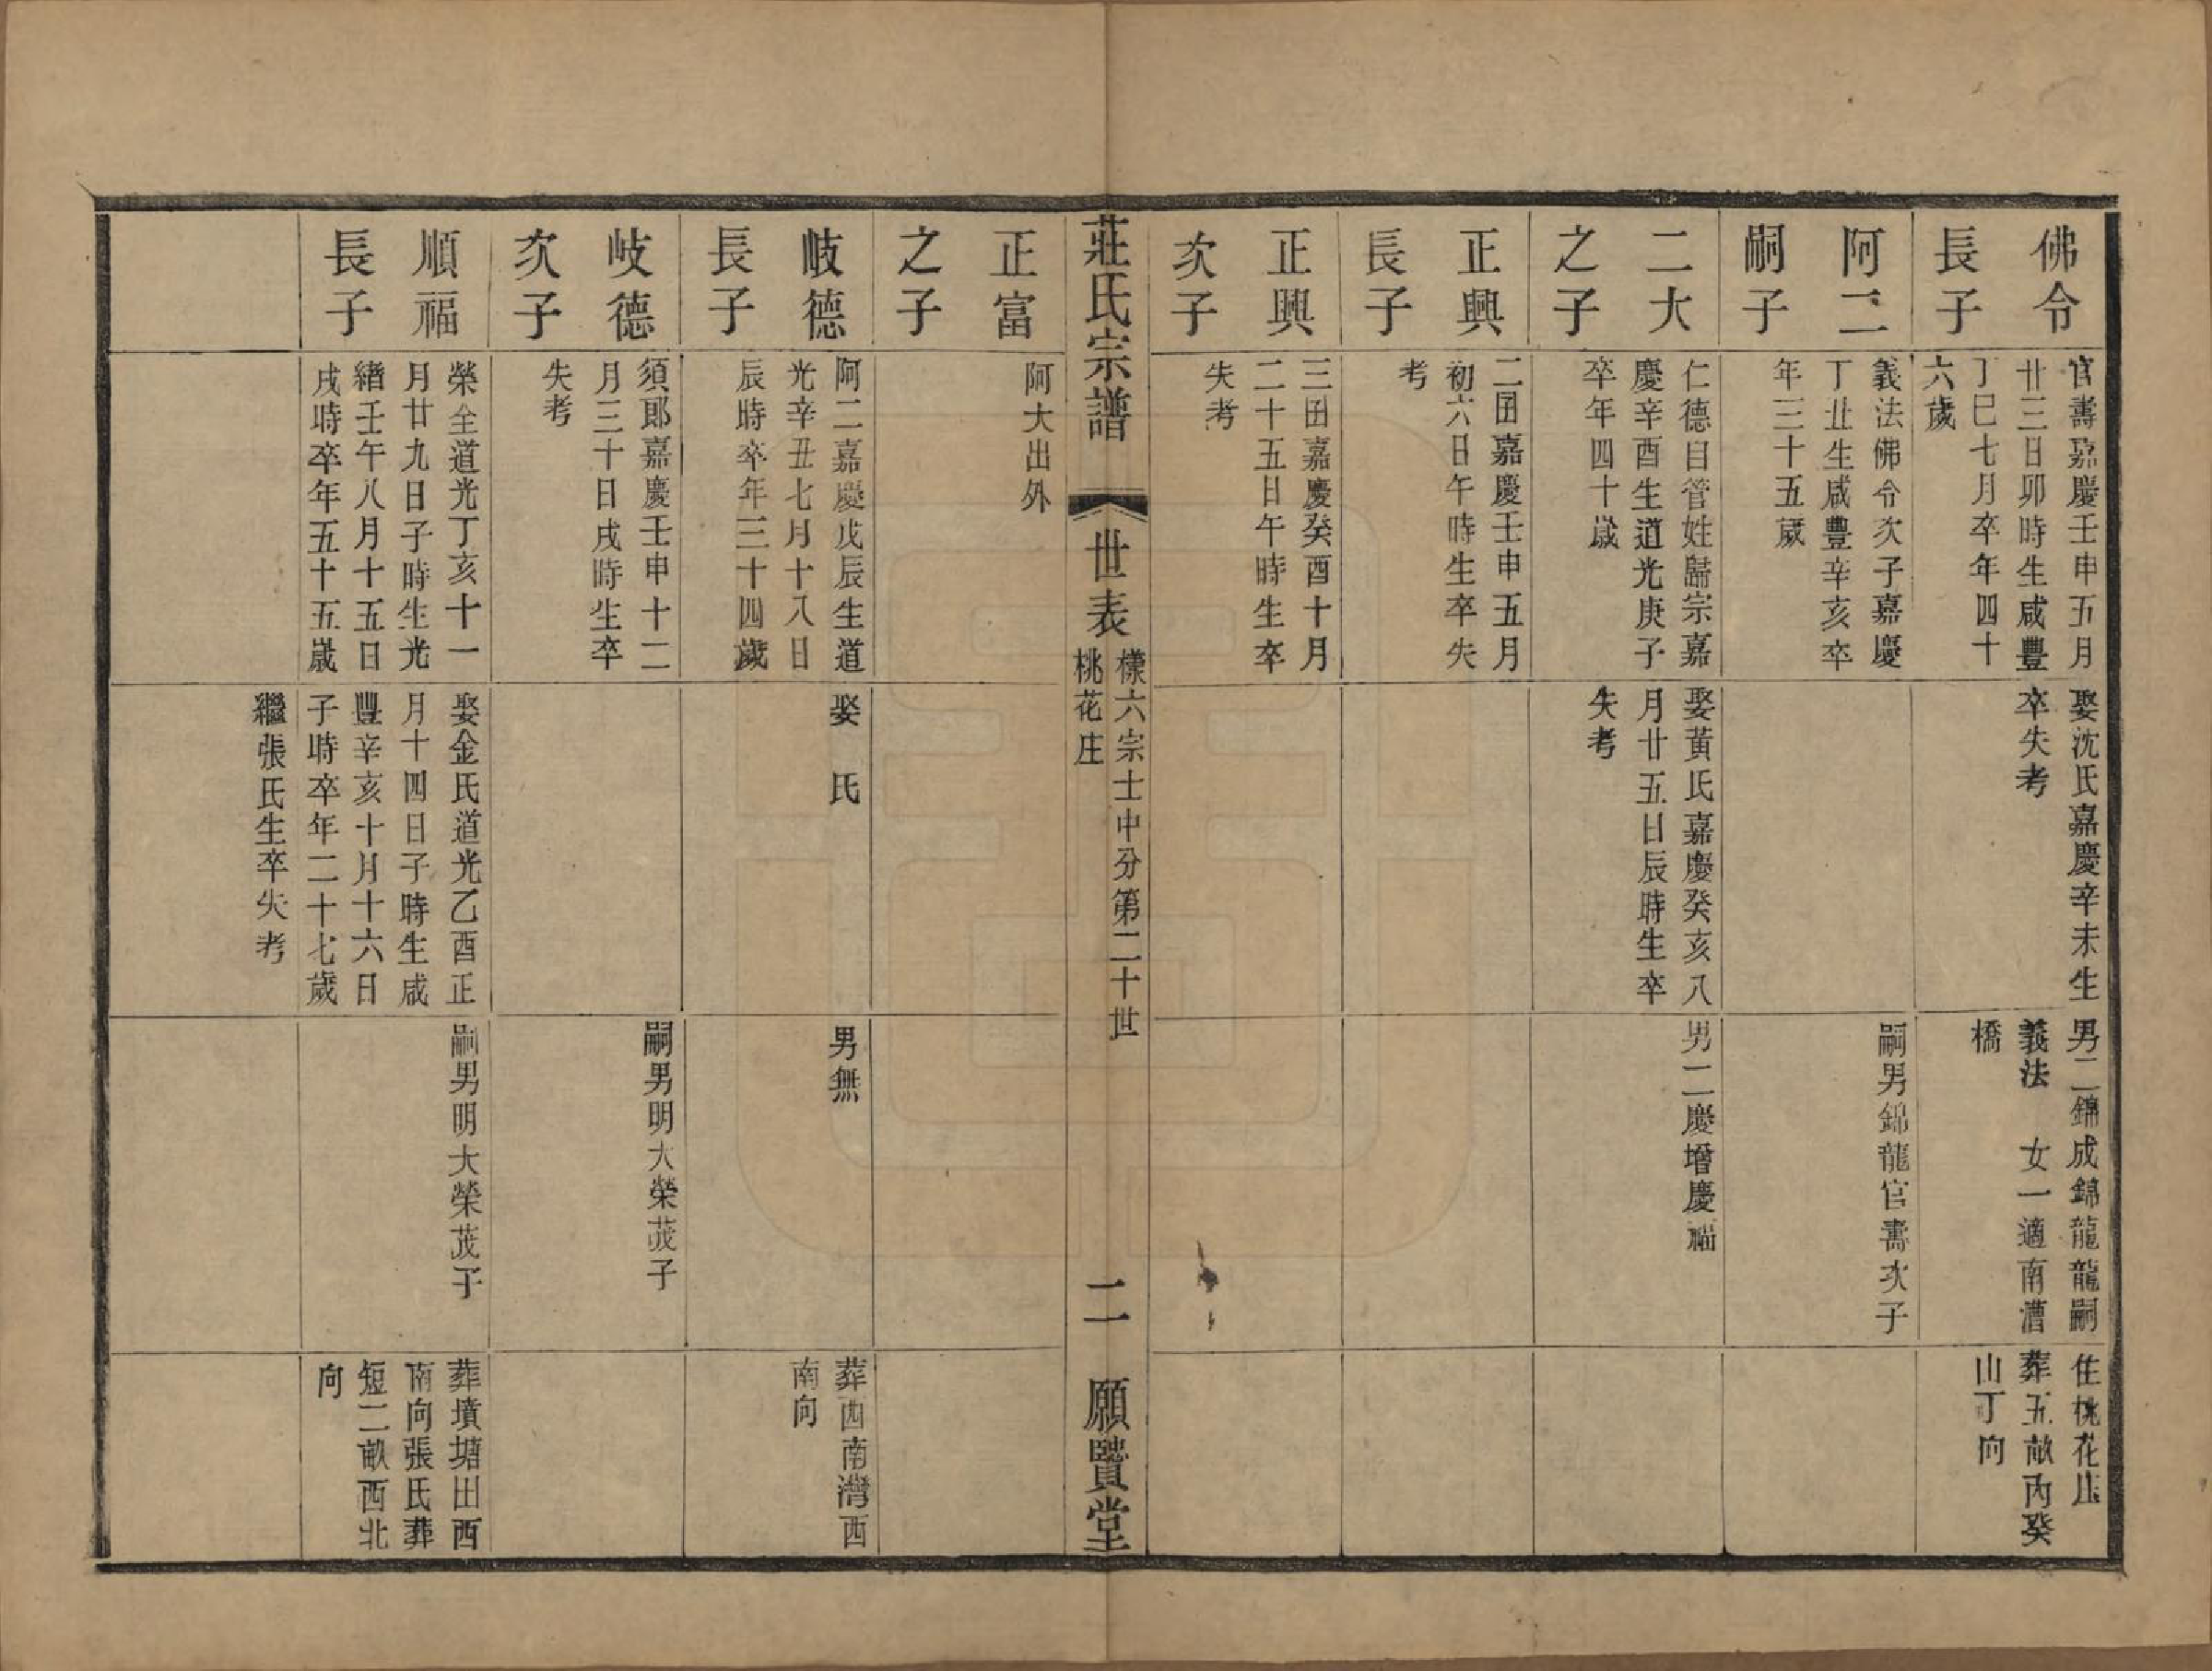 佛令
長子
官壽嘉慶壬申五月
廿三日卯時生咸豐
丁巳七月卒年四十
六歲
娶沈氏嘉慶辛未生
卒失考
男二錦成錦龍龍嗣
義法　女一適南漕
橋
住桃花庄
葬五畝內癸
山丁向
阿二
嗣子
義法佛令次子嘉慶
丁丑生咸豐辛亥卒
年三十五歲
嗣男錦龍官壽次子
二大
之子
仁德自管姓歸宗嘉
慶辛酉生道光庚子
卒年四十歲
娶黃氏嘉慶癸亥八
月廿五日辰時生卒
失考
男二慶增慶福
正興
長子
二囝嘉慶壬申五月
初六日午時生卒失
考
正興
次子
三囝嘉慶癸酉十月
二十五日午時生卒
失考
莊氏宗譜
世表
樣六宗士中分第二十世
桃花庄
二
願賢堂
正富
之子
阿大出外
岐德
長子
阿二嘉慶戊辰生道
光辛丑七月十八日
辰時卒年三十四歲
娶　氏
男無
葬西南灣西
南向
岐德
次子
須郎嘉慶壬申十二
月三十日戌時生卒
失考
嗣男明大榮茂子
順福
長子
榮全道光丁亥十一
月廿九日子時生光
緒壬午八月十五日
戌時卒年五十五歲
娶金氏道光乙酉正
月十四日子時生咸
豐辛亥十月十六日
子時卒年二十七歲
繼張氏生卒失考
嗣男明大榮茂子
葬墳塘田西
南向張氏葬
短二畝西北
向